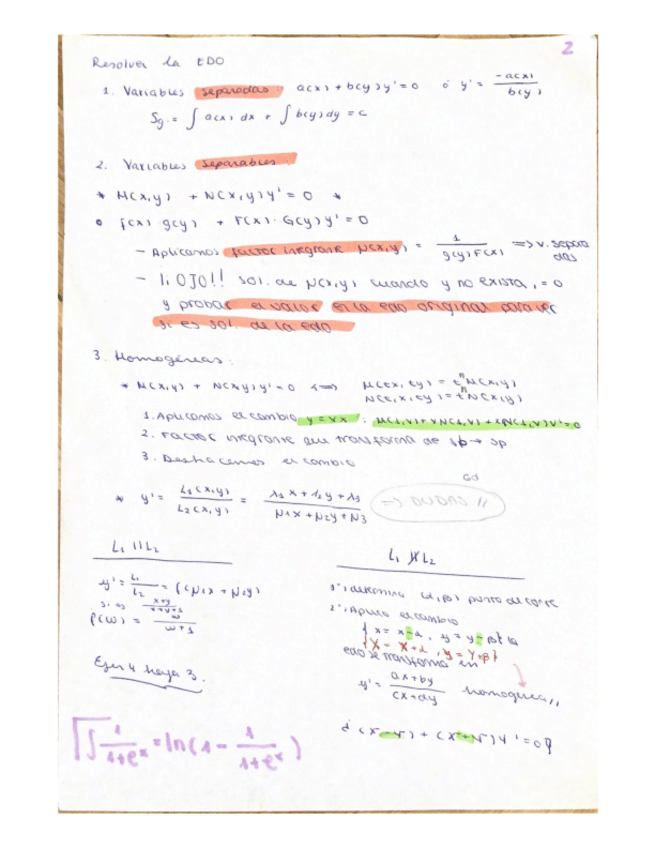 2
Resolver la EDO
1. Variables separadas: a(x) + b(y)y' = 0 ó y' = -a(x) / b(y)
Sg = ∫ a(x) dx + ∫ b(y) dy = c
2. Variables separables
* M(x,y) + N(x,y)y' = 0 *
o f(x) g(y) + F(x)·G(y)y' = 0
- Aplicamos factor integrante μ(x,y) = 1 / g(y)F(x) => v. separadas
- ¡¡OJO!! sol. de μ(x,y) cuando y no exista, = 0
y probar el valor en la edo original para ver
si es sol. de la edo
3. Homogéneas:
* M(x,y) + N(x,y)y' = 0 <=> M(tx,ty) = tⁿM(x,y)
N(tx,ty) = tⁿN(x,y)
1. Aplicamos el cambio y = vx : M(1,v) + vN(1,v) + xN(1,v)v' = 0
2. Factor integrante que transforma de sb → sp
3. Deshacemos el cambio
* y' = L₁(x,y) / L₂(x,y) = λ₁x + λ₂y + λ₃ / μ₁x + μ₂y + μ₃ => DUDAS !!
L₁ || L₂
y' = L₁ / L₂ = f(μ₁x + μ₂y)
si es x+y / x+y+1
f(w) = w / w+1
Ejer 4 hoja 3.
L₁ ∦ L₂
1º: determino (α,β) punto de corte
2º: Aplico el cambio
{ x = x-α, y = y-β } la
{ X = X+α, y = Y+β }
edo se transforma en
y' = ax+by / cx+dy homogénea,,
∫ 1 / 1+eˣ = ln(1 - 1 / 1+eˣ)